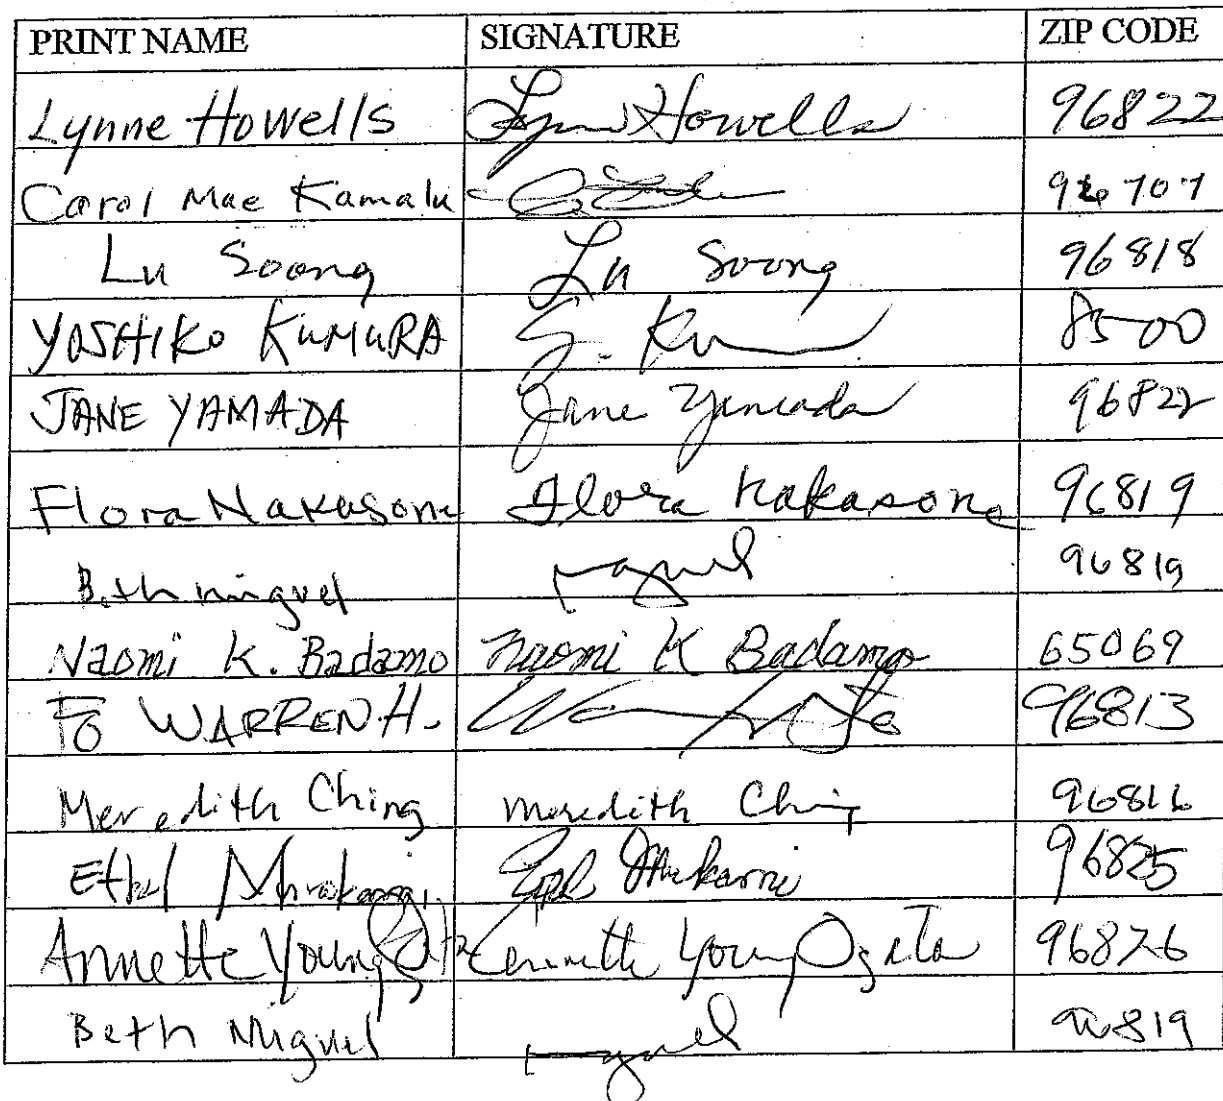 PRINT NAME SIGNATURE ZIP CODE
Lynne Howells Lynne Howells 96822
Carol Mae Kamalu 96707
Lu Soong Lu Soong 96818
YOSHIKO KUMURA Y. Ku 8500
JANE YAMADA Jane Yamada 96822
Flora Nakasone Flora Nakasone 96819
Beth miguel 96819
Naomi K. Badamo Naomi K Badamo 65069
FO WARREN H. 96813
Meredith Ching Meredith Ching 96816
Ethel Murakami 96825
Annette Young Annette Young Ogata 96826
Beth Miguel 96819